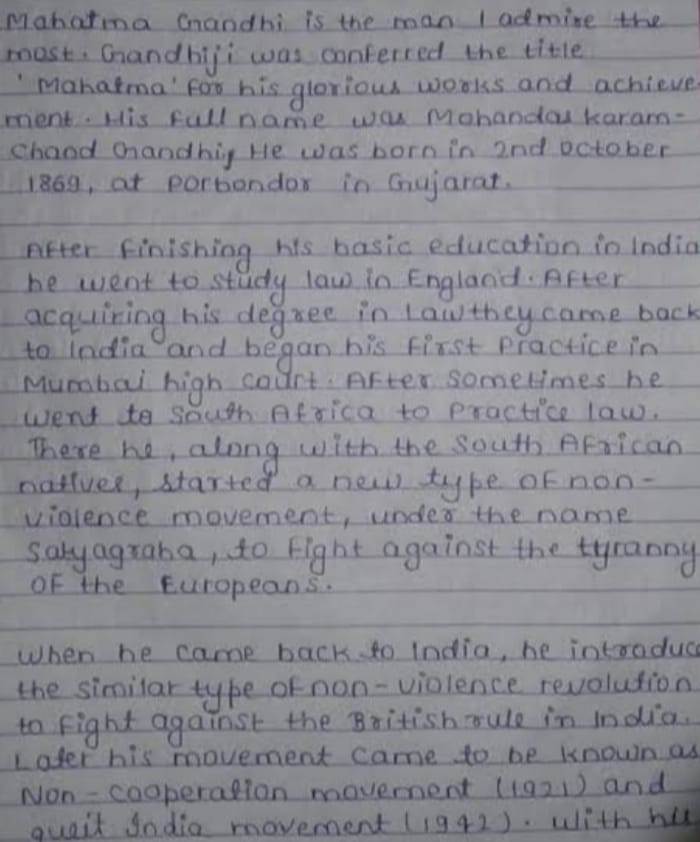 Mahatma Gandhi is the man I admire the
most. Gandhiji was conferred the title
'Mahatma' for his glorious works and achieve-
ment. His full name was Mohandas karam-
chand Gandhiji He was born in 2nd october
1869, at porbondor in Gujarat.
After finishing his basic education in India
he went to study law in England. After
acquiring his degree in law they came back
to India and began his first practice in
Mumbai high court. After sometimes he
went to South Africa to practice law.
There he, along with the South African
natives, started a new type of non-
violence movement, under the name
Satyagraha, to fight against the tyranny
of the Europeans.
when he came back to India, he introduc
the similar type of non-violence revolution
to fight against the British rule in India.
Later his movement came to be known as
Non-cooperation movement (1921) and
queit India movement (1942). With his